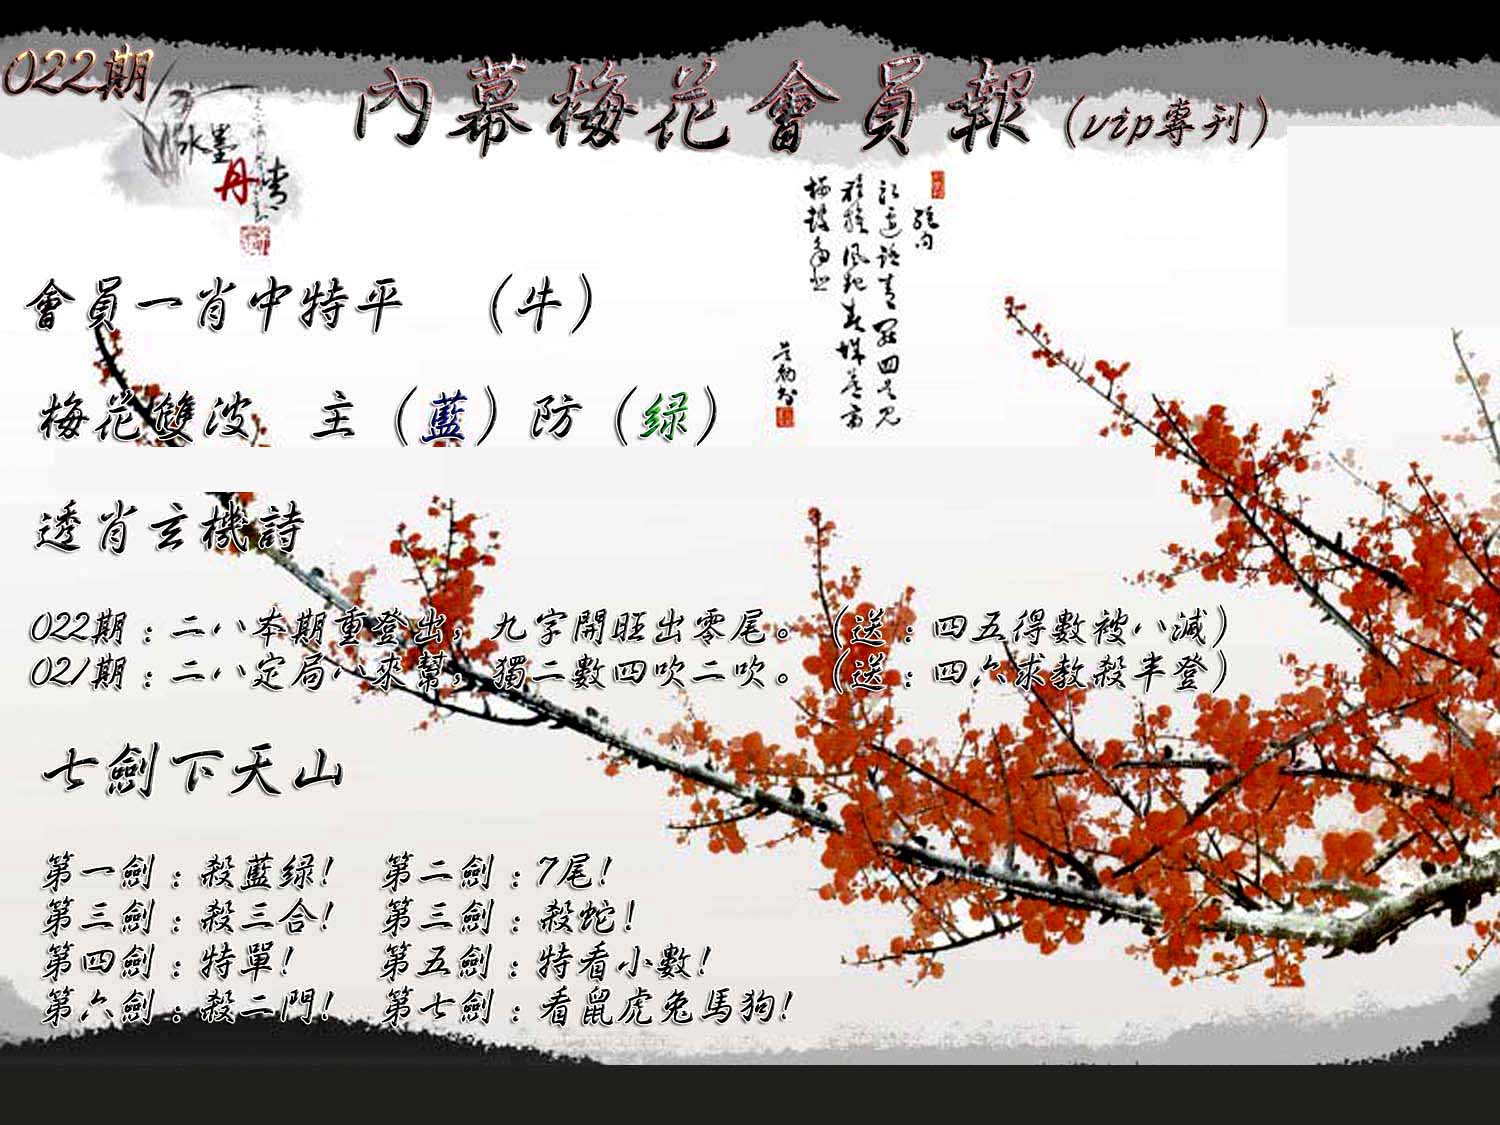 022期
內幕梅花會員報（vip專刊）
水墨
丹青
會員一肖中特平　（牛）
梅花雙波　主（藍）防（绿）
透肖玄機詩
022期：二八本期重登出，九字開旺出零尾。（送：四五得數被八減）
021期：二八定局八來幫，獨二數四吹二吹。（送：四六求教殺半登）
七劍下天山
第一劍：殺藍绿!　第二劍：7尾!
第三劍：殺三合!　第三劍：殺蛇!
第四劍：特單!　第五劍：特看小數!
第六劍：殺二門!　第七劍：看鼠虎兔馬狗!